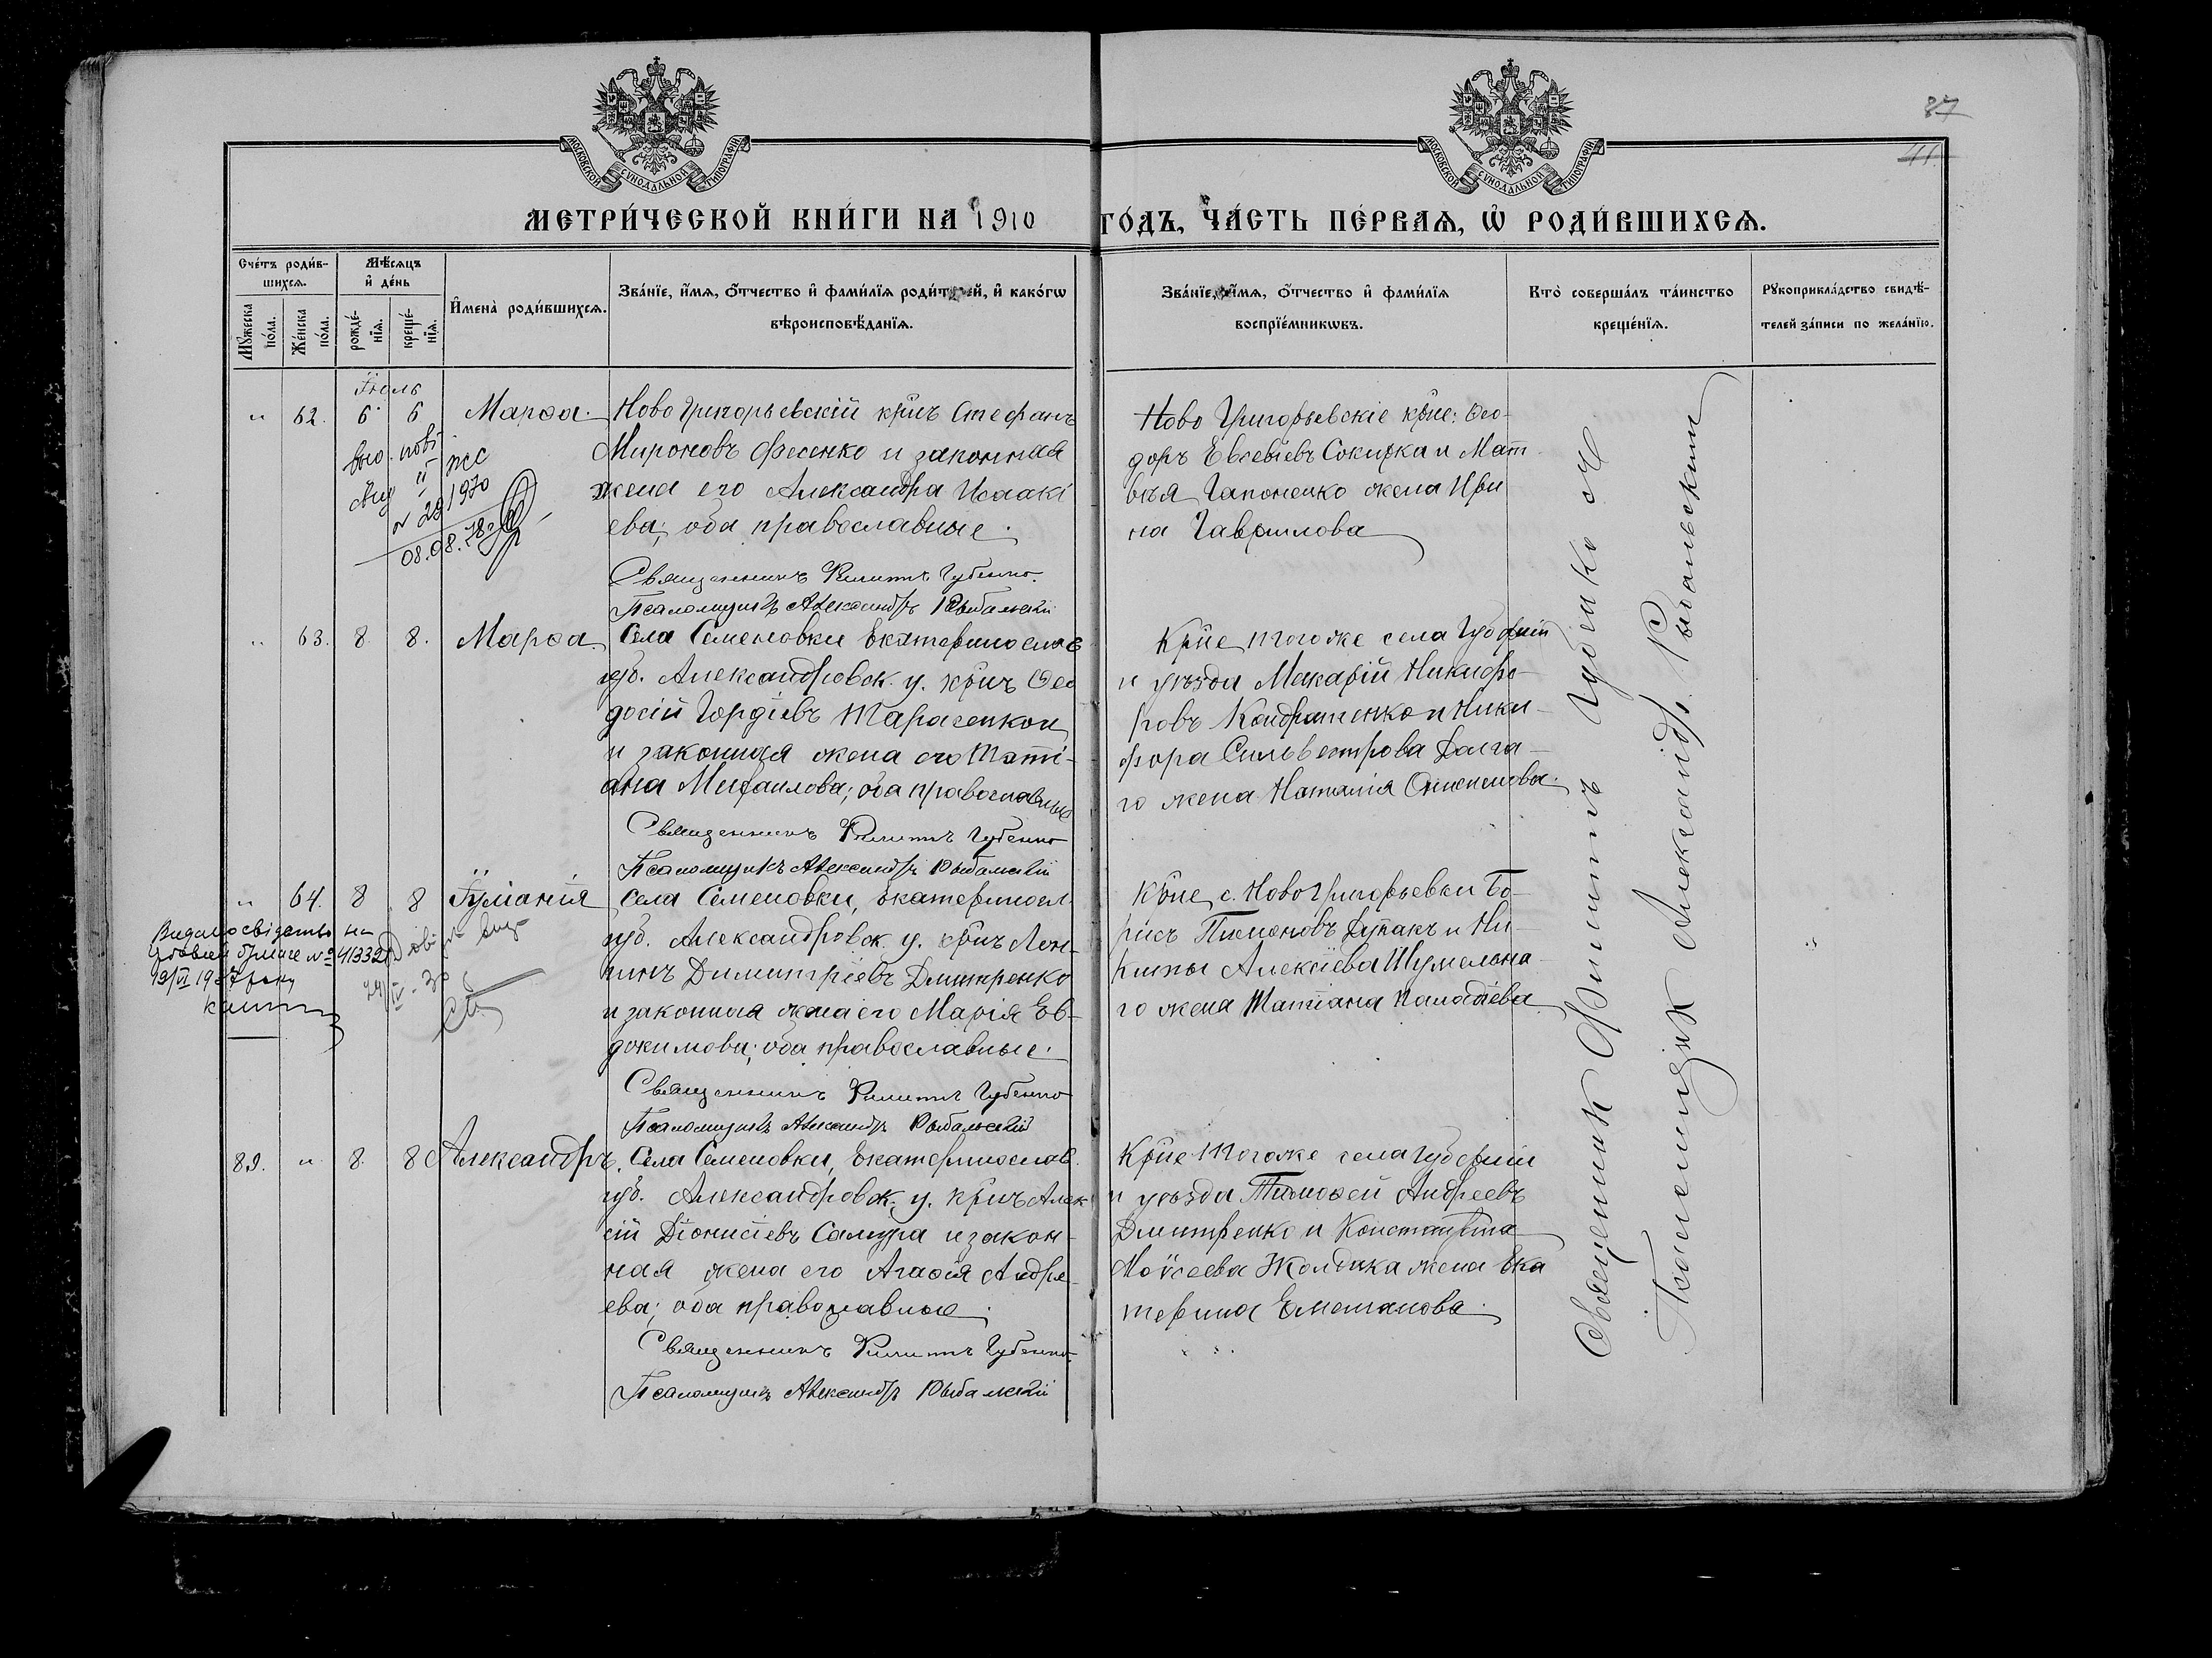 87
41.
МОСКОВСКОЙ СѴНОДАЛЬНОЙ ТИПОГРАФІИ
МОСКОВСКОЙ СѴНОДАЛЬНОЙ ТИПОГРАФІИ
МЕТРИ́ЧЕСКОЙ КНИ́ГИ НА 1910 ГО́ДЪ, ЧА́СТЬ ПЕ́РВАѦ, Ѡ҆ РОДИ́ВШИХСѦ.
Сче́тъ роди́в-
шихсѧ.
Мꙋжеска по́ла.
Же́нска по́ла.
Мѣ́сѧцъ
и҆ де́нь
рожде́-
нїѧ.
креще́-
нїѧ.
И҆мена̀ роди́вшихсѧ.
Зва́нїе, и҆́мѧ, ѻ҆́тчество и҆ фами́лїѧ роди́телей, и҆ како́гѡ
вѣроисповѣ́данїѧ.
Зва́нїе, и҆́мѧ, ѻ҆́тчество и҆ фами́лїѧ
воспрїе́мникѡвъ.
Кто̀ соверша́лъ та́инство
креще́нїѧ.
Рꙋкоприкла́дство свидѣ́-
телей за́писи по жела́нїю.
Іюль
" 62. 6 6 Марѳа. Ново Григорьевскій крнъ Стефанъ
Мироновъ Фесенко и законная
жена его Александра Исаакі
ева; оба православные.
Священникъ Филиппъ Губенко.
Псаломщикъ Александръ Рыбальскій
Ново Григорьевскіе крне: Ѳео-
доръ Евсевіевъ Сокирка и Мат
вѣя Гапоненко жена Ири
на Гаврилова
29/970
08.08.78
" 63. 8. 8. Марѳа. Села Семеновки Екатеринослав
губ. Александровск. у. крнъ Ѳео
досій Гордіевъ Тарасенков
и законная жена его Таті-
ана Михаилова; оба православные
Священникъ Филиппъ Губенко
Псаломщикъ Александръ Рыбальскій
Крне того же села губерніи
и уѣзда Макарій Никифо-
ровъ Кондратенко и Ники-
фора Сильвестрова Долга-
го жена Наталія Стефанова.
" 64. 8 8 Іуліанія Села Семеновки, Екатериносл.
губ. Александровск. у. крнъ Лон-
гинъ Димитріевъ Дмитренко
и законная жена его Марія Ев-
докимова; оба православные.
Священникъ Филиппъ Губенко
Псаломщикъ Александръ Рыбальскій
Крне с. Ново Григорьевки Бо-
рисъ Пименовъ Дупакъ и Ни-
киты Алексіева Шумельна-
го жена Татіана Паладіева
Видано свідоцтво на
гербовій бумазі № 413321
19/VI 1937 року
89. " 8. 8 Александръ. Села Семеновки, Екатеринослав.
губ. Александровск. у. крнъ Алек
сій Діонисіевъ Самура и закон-
ная жена его Агаѳія Андре-
ева; оба православные.
Священникъ Филиппъ Губенко.
Псаломщикъ Александръ Рыбальскій
Крне того же села губерніи
и уѣзда Тимоѳей Андреевъ
Дмитренко и Константина
Моѵсеева Жолдака жена Ека
терина Емельянова.
Священникъ Филиппъ Губенко
Псаломщикъ Александръ Рыбальскій